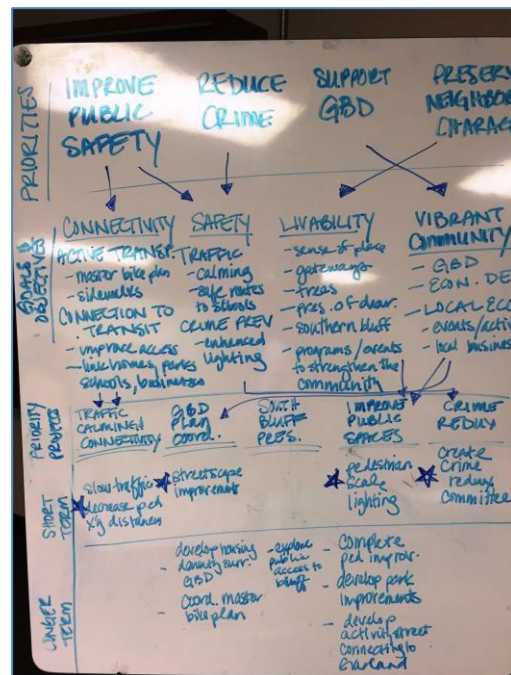 PRIORITIES
IMPROVE
PUBLIC
SAFETY
REDUCE
CRIME
SUPPORT
GBD
PRESERV
NEIGHBOR
CHARAC
GOALS &
OBJECTIVES
CONNECTIVITY
ACTIVE TRANSP.
- master bike plan
- sidewalks
CONNECTION TO
TRANSIT
- improve access
- link homes, parks
schools, businesses
SAFETY
TRAFFIC
- calming
- safe routes
to schools
CRIME PREV
- enhanced
lighting
LIVABILITY
- sense of place
- gateways
- trees
- pres. of char.
- southern bluff
- programs/events
to strengthen the
community
VIBRANT
COMMUNITY
- GBD
- ECON. DE
- LOCAL ECO
- events/activ
- local busines
PRIORITY
PROJECTS
TRAFFIC
CALMING
CONNECTIVITY
GBD
PLAN
COORD.
SOUTH
BLUFF
PRES.
IMPROVE
PUBLIC
SPACES
CRIME
REDUX
SHORT
TERM
slow traffic
decrease ped
x'g distances
streetscape
improvements
pedestrian
scale
lighting
create
crime
redux
committee
LONGER
TERM
- develop housing
density surr.
GBD
- coord. master
bike plan
- explore
public
access to
bluff
- complete
ped improv.
- develop park
improvements
- develop
activity street
connecting to